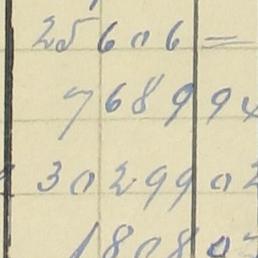 25606 =
76899
3029902
18080